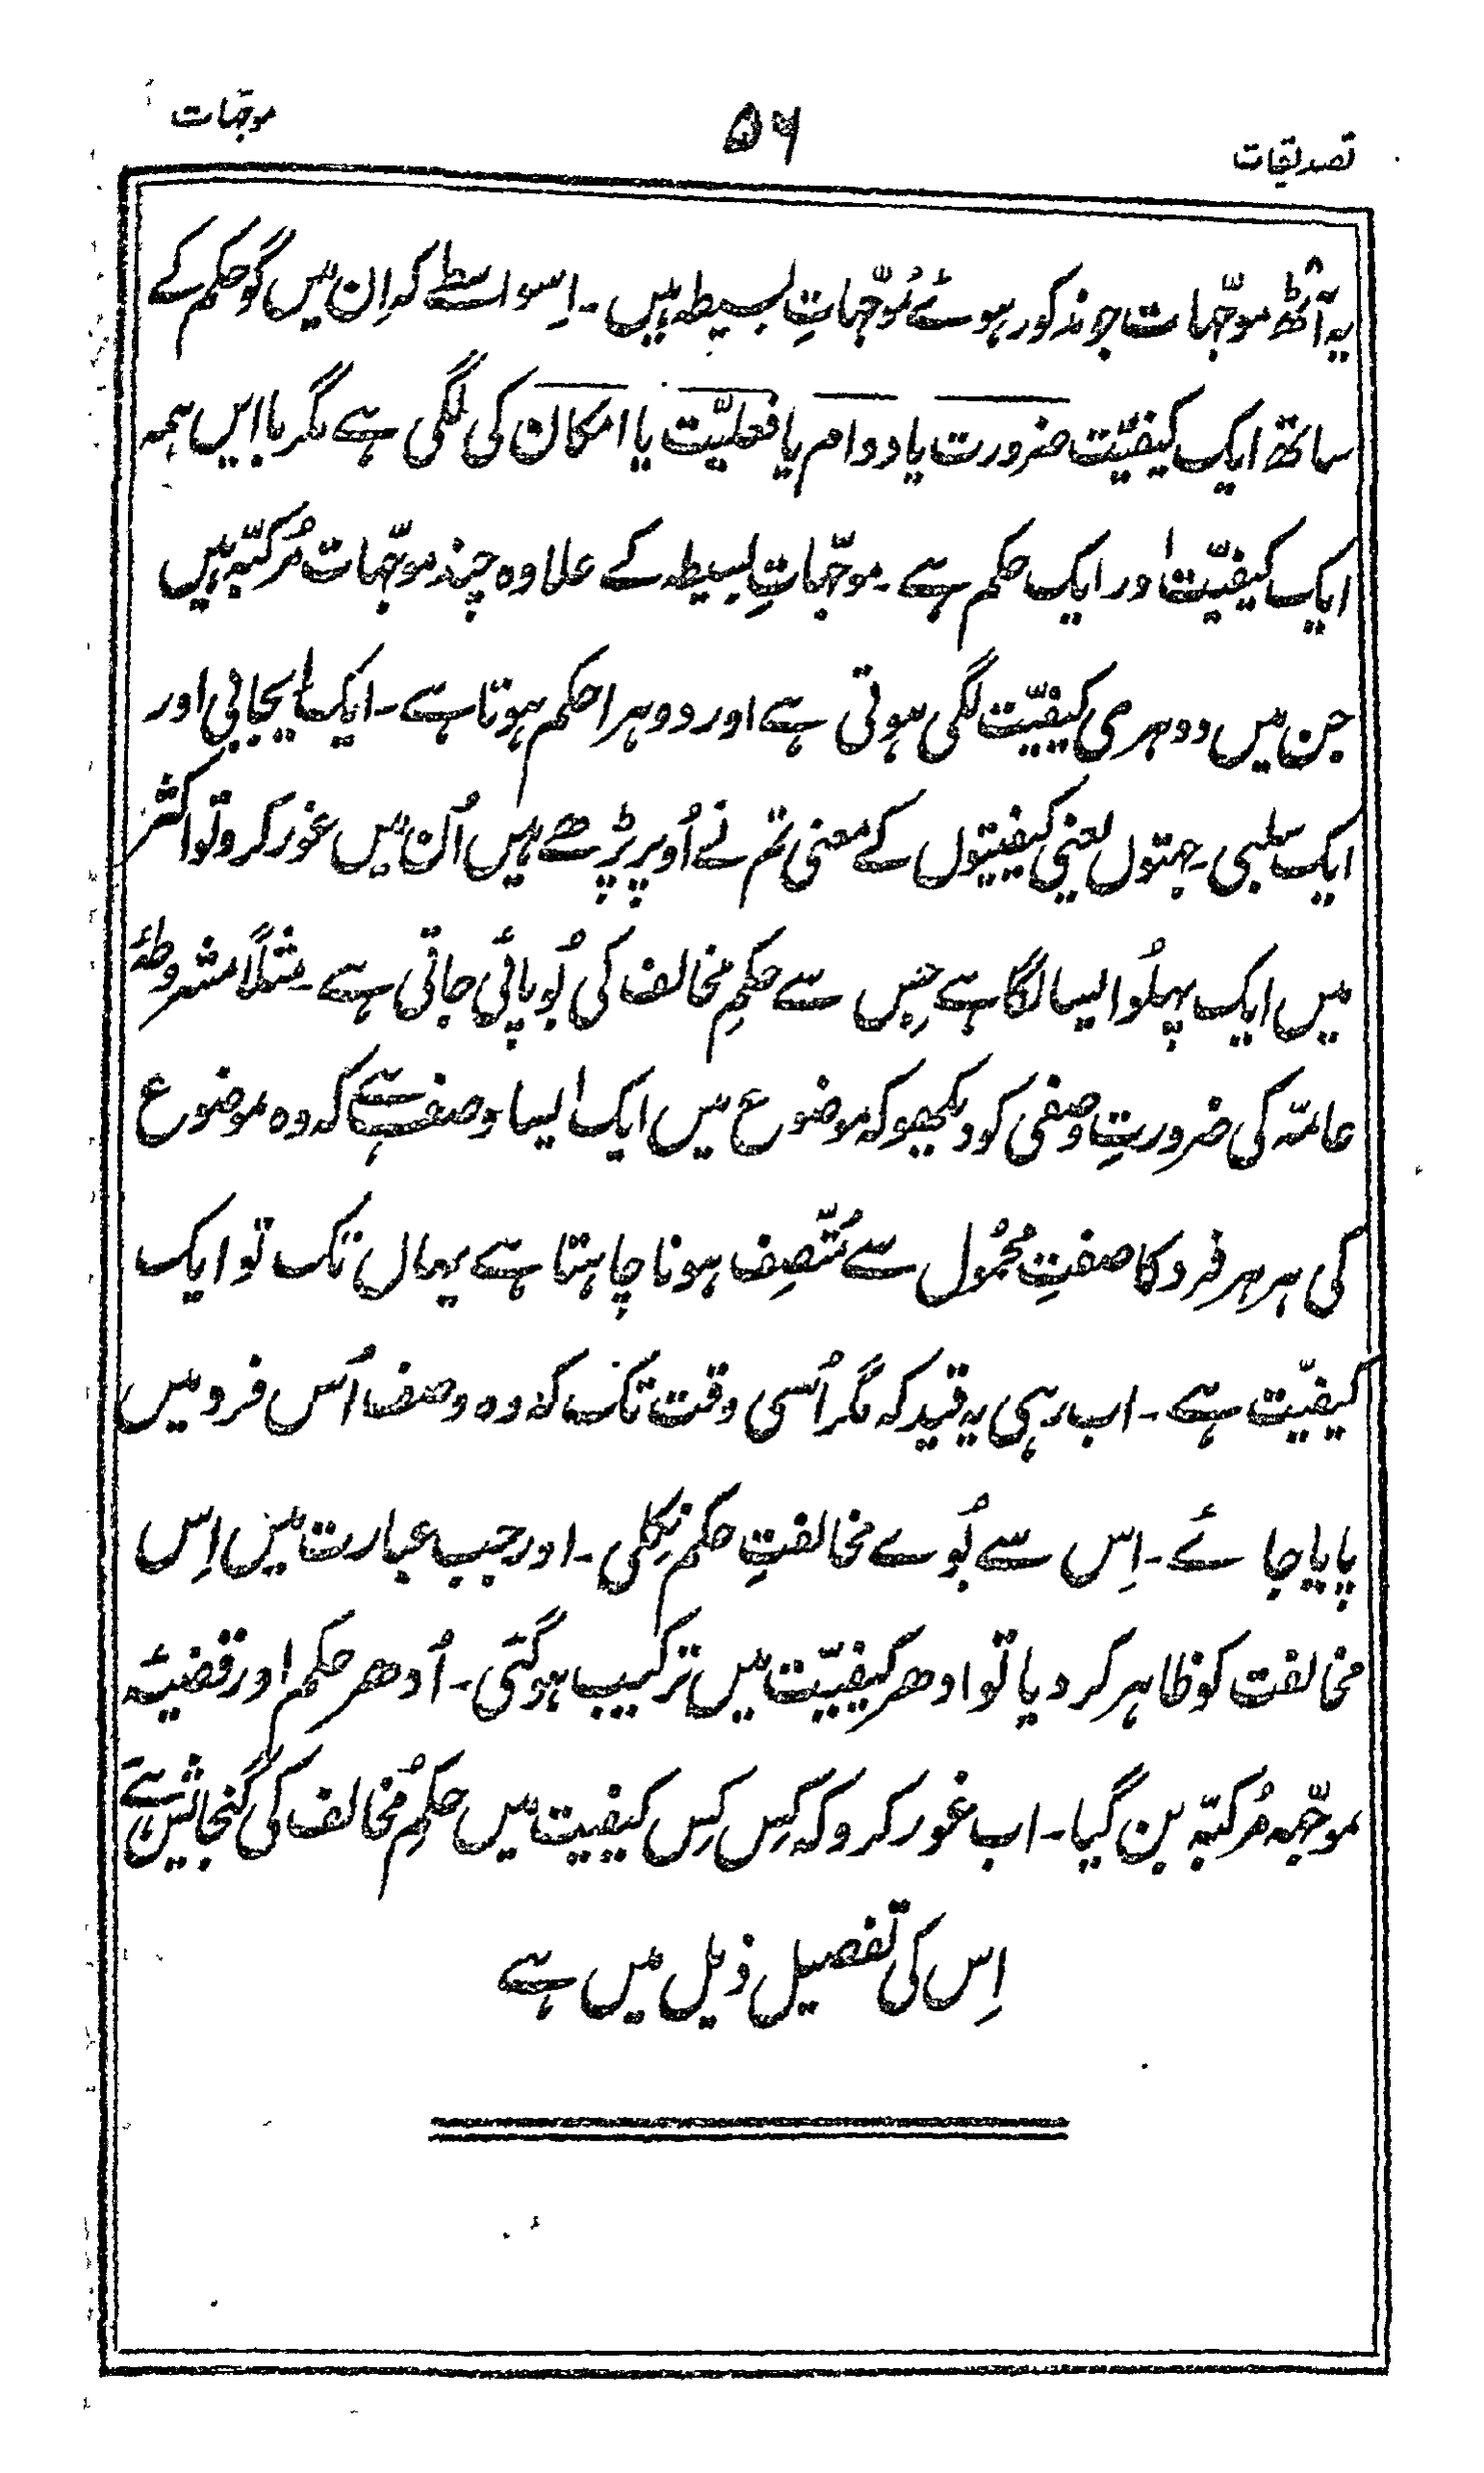 تصدیقات
۵۶
موجہات
یہ آٹھ موجّہات جو مذکور ہوئے مُوَجّہاتِ بسیطہ ہیں۔ اِسواسطے کہ اِن میں گو حکم کے
ساتھ ایک کیفیّت ضرورت یا دوام یا فعلیّت یا امکان کی لگی ہے مگر با ایں ہمہ
ایک کیفیّت اور ایک حکم ہے۔ موجّہاتِ بسیطہ کے علاوہ چند موجّہات مُرکّبہ ہیں
جن میں دوہری کیفیّت لگی ہوتی ہے اور دوہرا حکم ہوتا ہے۔ ایک ایجابی اور
ایک سلبی۔ جہتوں یعنی کیفیتوں کے معنی تم نے اُوپر پڑھے ہیں اُن میں غور کرو تو اکثر
میں ایک پہلُو ایسا لگا ہے جِس سے حکمِ مخالف کی بُو پائی جاتی ہے۔ مثلاً مشروطۂ
عامّہ کی ضرورتِ وصفی کو دیکھو کہ موضوع میں ایک ایسا وصف ہے کہ وہ موضوع
کی ہر ہر فرد کا صفتِ محمُول سے مُتّصِف ہونا چاہتا ہے یہاں تک تو ایک
کیفیّت ہے۔ اب رہی یہ قید کہ مگر اُسی وقت تک کہ وہ وصف اُس فرد میں
پایا جائے۔ اِس سے بُوے مخالفتِ حکم نِکلی۔ اور جب عبارت میں اِس
مخالفت کو ظاہر کر دیا تو ادھر کیفیّت میں ترکیب ہو گئی۔ اُدھر حکم اور قضیّہ
موجّہہ مُرکّبہ بن گیا۔ اب غور کرو کہ کِس کِس کیفیت میں حکمِ مُخالف کی گنجائش ہے
اِس کی تفصیل ذیل میں ہے